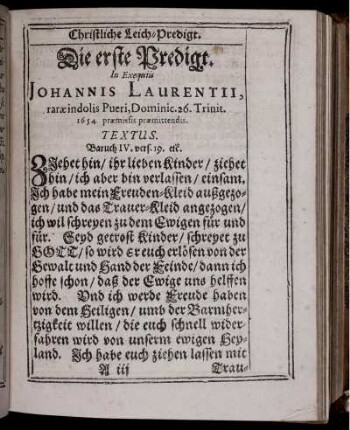 Christliche Leich-Predigt.
Die erste Predigt.
In Exequiis
JOHANNIS LAURENTII,
raræ indolis Pueri, Dominic. 26. Trinit.
1654. præmissis præmittendis.
TEXTUS.
Baruch IV. vers. 19. etc.
ZIehet hin / ihr lieben Kinder / ziehet
hin / ich aber bin verlassen / einsam.
Ich habe mein Freuden-Kleid außgezo-
gen / und das Trauer-Kleid angezogen /
ich wil schreyen zu dem Ewigen für und
für. Seyd getrost Kinder / schreyet zu
GOTT / so wird er euch erlösen von der
Gewalt und Hand der Feinde / dann ich
hoffe schon / daß der Ewige uns helffen
wird. Und ich werde Freude haben
von dem Heiligen / umb der Barmher-
tzigkeit willen / die euch schnell wider-
fahren wird von unserm ewigen Hey-
land. Ich habe euch ziehen lassen mit
A iij Trau-